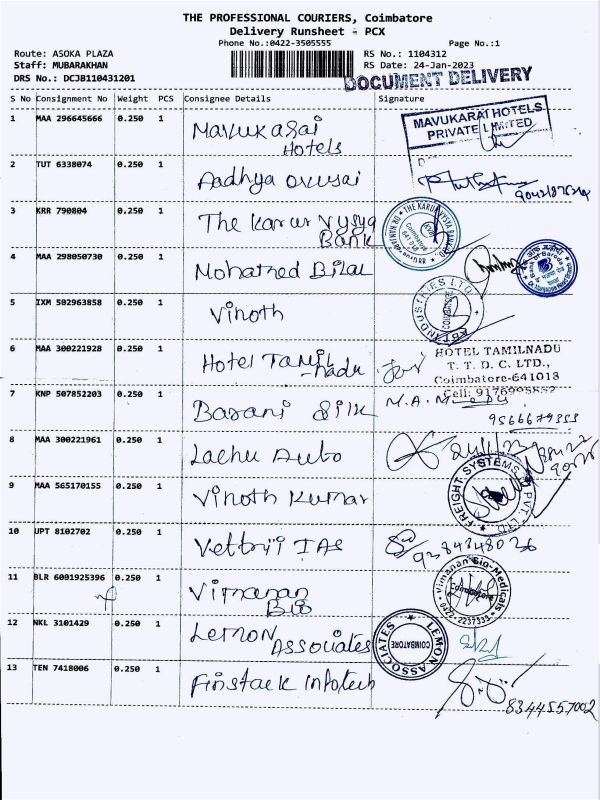 THE PROFESSIONAL COURIERS, Coimbatore
Delivery Runsheet - PCX
Phone No.:0422-3505555
Page No.:1
Route: ASOKA PLAZA
RS No.: 1104312
Staff: MUBARAKHAN
RS Date: 24-Jan-2023
DRS No.: DCJB110431201
DOCUMENT DELIVERY
S No Consignment No Weight PCS Consignee Details Signature
1 MAA 296645666 0.250 1 Mavukarai
Hotels
MAVUKARAI HOTELS
PRIVATE LIMITED
2 TUT 6338074 0.250 1 Aadhya
3 KRR 790804 0.250 1 The Karur Vysya
Bank
4 MAA 298050730 0.250 1 Bilal
5 IXM 502963858 0.250 1 Vinoth
INDUSTRIES LTD
6 MAA 300221928 0.250 1 Hotel Tamil
nadu
HOTEL TAMILNADU
T. T. D. C. LTD.,
Coimbatore-641018
7 KNP 507852203 0.250 1 Barani Silk
8 MAA 300221961 0.250 1 Auto
FREIGHT SYSTEMS PVT. LTD
9 MAA 565170155 0.250 1 Vinoth Kumar
10 UPT 8102702 0.250 1 IAS
9384348026
11 BLR 6001925396 0.250 1 Vimanan
Bio
Vimanan Bio-Medicals
Coimbatore
0422-2237333
12 NKL 3101429 0.250 1 Lemon
Associates
LEMON ASSOCIATES
COIMBATORE
13 TEN 7418006 0.250 1 Finstack Infotech
8344557002